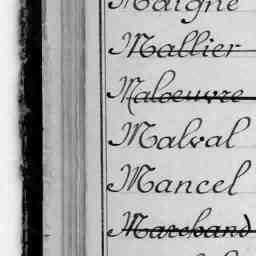 Maigne
Mallier
Maloeuvre
Malval
Mancel
Marchand